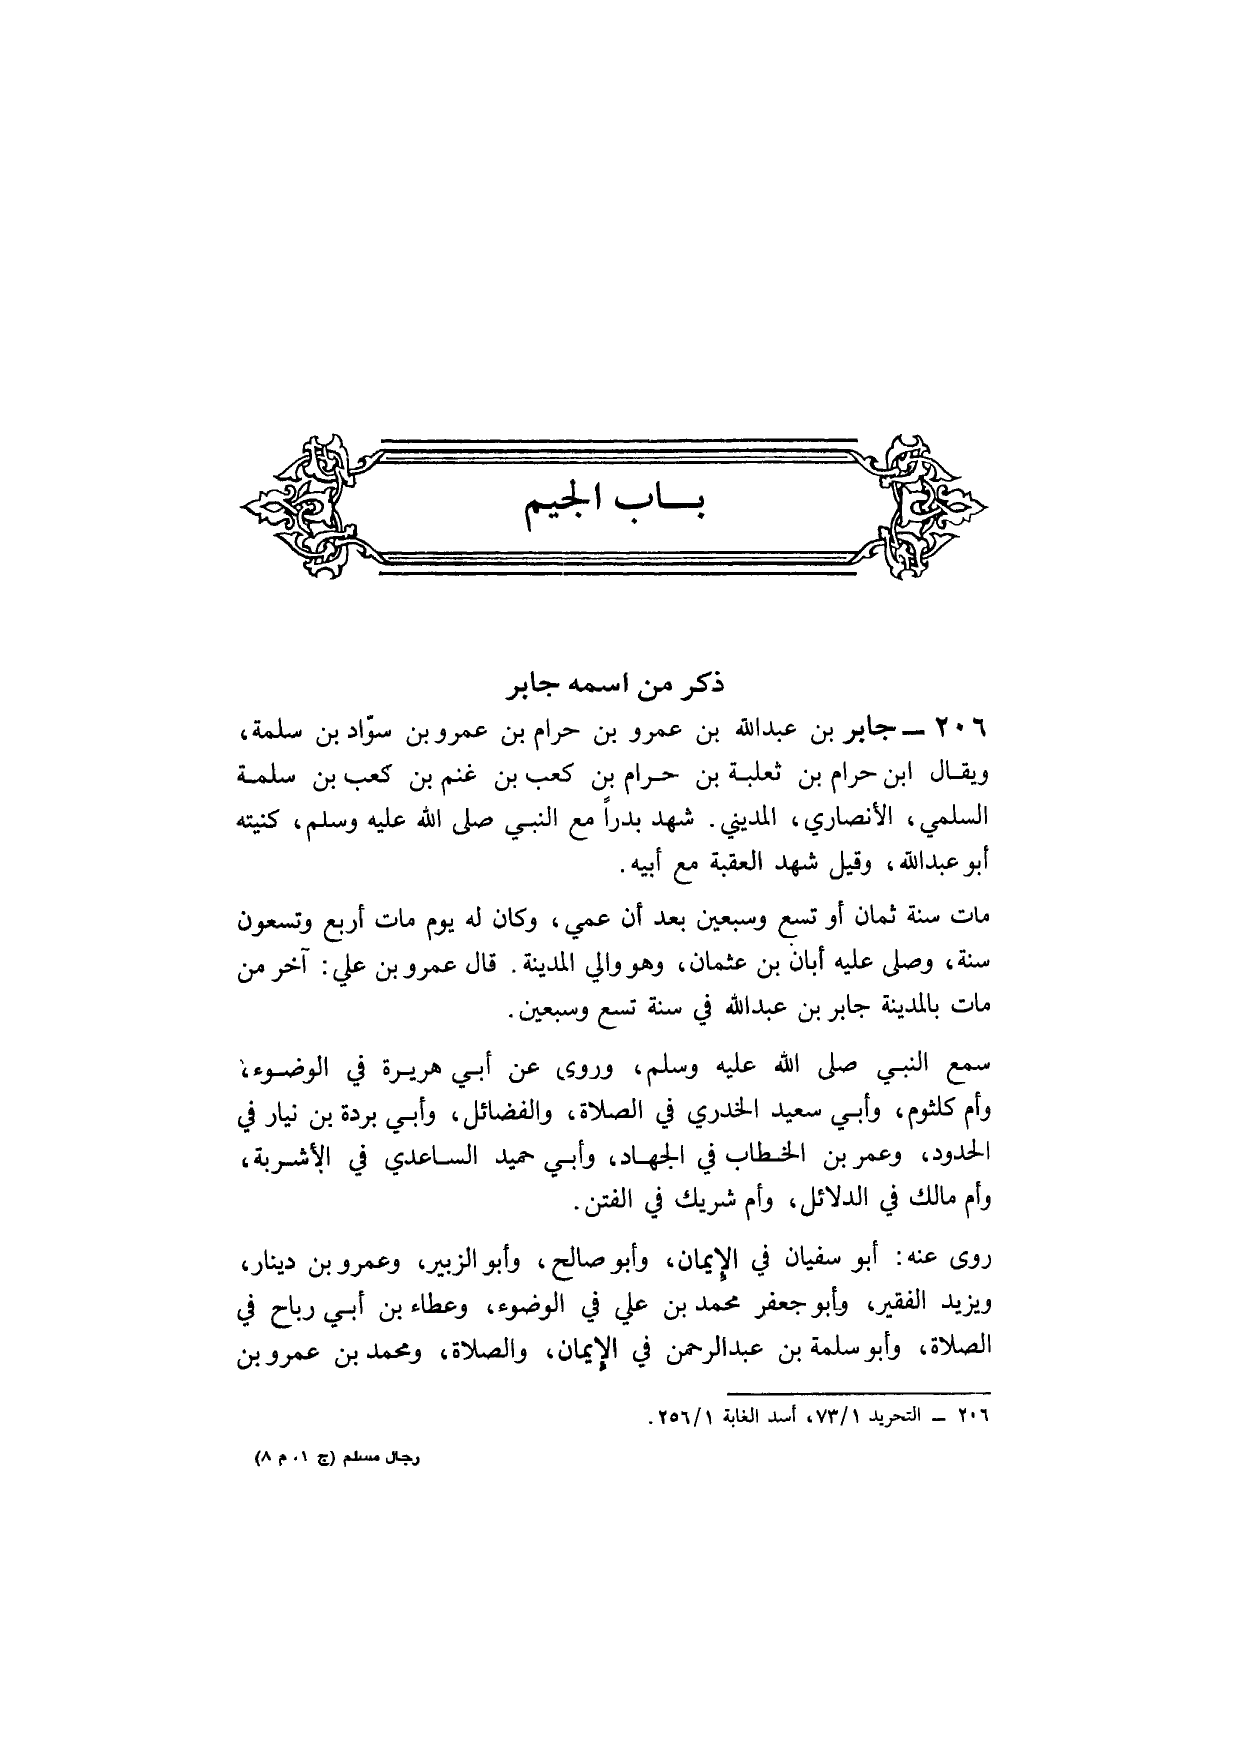 بـاب الجيم
ذكر من اسمه جابر
٢٠٦ ــ جابر بن عبدالله بن عمرو بن حرام بن عمرو بن سوّاد بن سلمة،
ويقال ابن حرام بن ثعلبة بن حرام بن كعب بن غنم بن كعب بن سلمة
السلمي، الأنصاري، المديني. شهد بدراً مع النبي صلى الله عليه وسلم، كنيته
أبو عبدالله، وقيل شهد العقبة مع أبيه.
مات سنة ثمان أو تسع وسبعين بعد أن عمي، وكان له يوم مات أربع وتسعون
سنة، وصلى عليه أبان بن عثمان، وهو والي المدينة. قال عمرو بن علي: آخر من
مات بالمدينة جابر بن عبدالله في سنة تسع وسبعين.
سمع النبي صلى الله عليه وسلم، وروى عن أبي هريرة في الوضوء،
وأم كلثوم، وأبي سعيد الخدري في الصلاة، والفضائل، وأبي بردة بن نيار في
الحدود، وعمر بن الخطاب في الجهاد، وأبي حميد الساعدي في الأشربة،
وأم مالك في الدلائل، وأم شريك في الفتن.
روى عنه: أبو سفيان في الإيمان، وأبو صالح، وأبو الزبير، وعمرو بن دينار،
ويزيد الفقير، وأبو جعفر محمد بن علي في الوضوء، وعطاء بن أبي رباح في
الصلاة، وأبو سلمة بن عبدالرحمن في الإيمان، والصلاة، ومحمد بن عمرو بن
٢٠٦ ــ التحريد ٧٣/١، أسد الغابة ٢٥٦/١.
رجال مسلم (ج ١، م ٨)